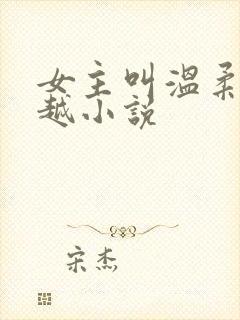 女主叫溫柔
越小說
宋杰